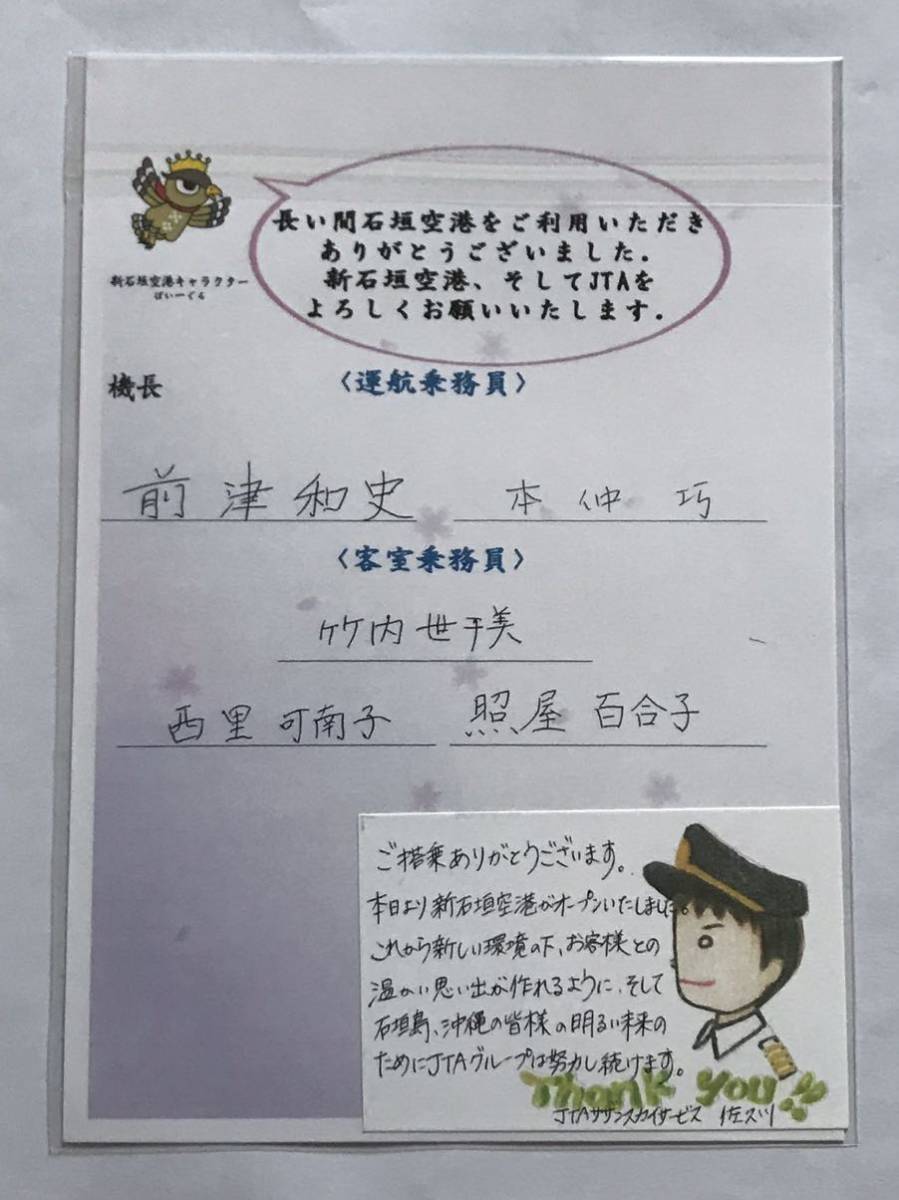 長い間石垣空港をご利用いただき
ありがとうございました.
新石垣空港、そしてJTAを
よろしくお願いいたします.
新石垣空港キャラクター
ぱいーぐる
機長
〈運航乗務員〉
前津和史 本仲 巧
〈客室乗務員〉
竹内世千美
西里可南子 照屋百合子
ご搭乗ありがとうございます。
本日より新石垣空港がオープンいたしました。
これから新しい環境の下、お客様との
温かい思い出が作れるように、そして
石垣島、沖縄の皆様の明るい未来の
ためにJTAグループは努力し続けます。
Thank you!!
JTAサザンスカイサービス 佐久川